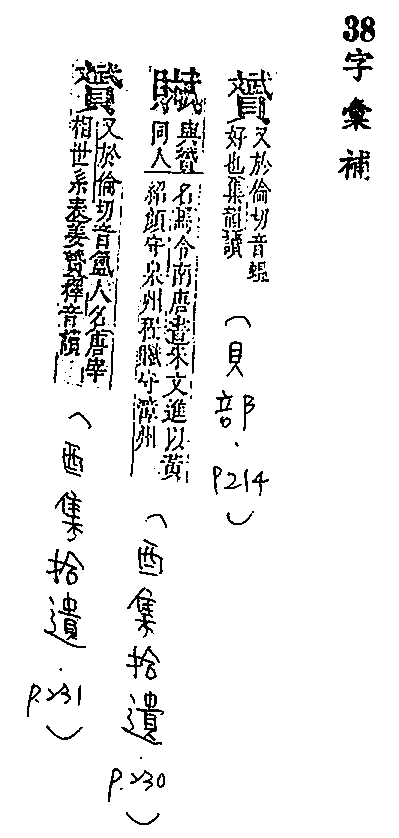 38字彙補
贇又於倫切音蝹
好也集韻讀
(貝部.P214)
與贇
同人名馬令南唐書朱文進以黃
紹頗守泉州程贇守漳州
(酉集拾遺.P.230)
贇又於倫切音氳人名唐宰
相世系表姜贇釋音頵
(酉集拾遺.P.231)